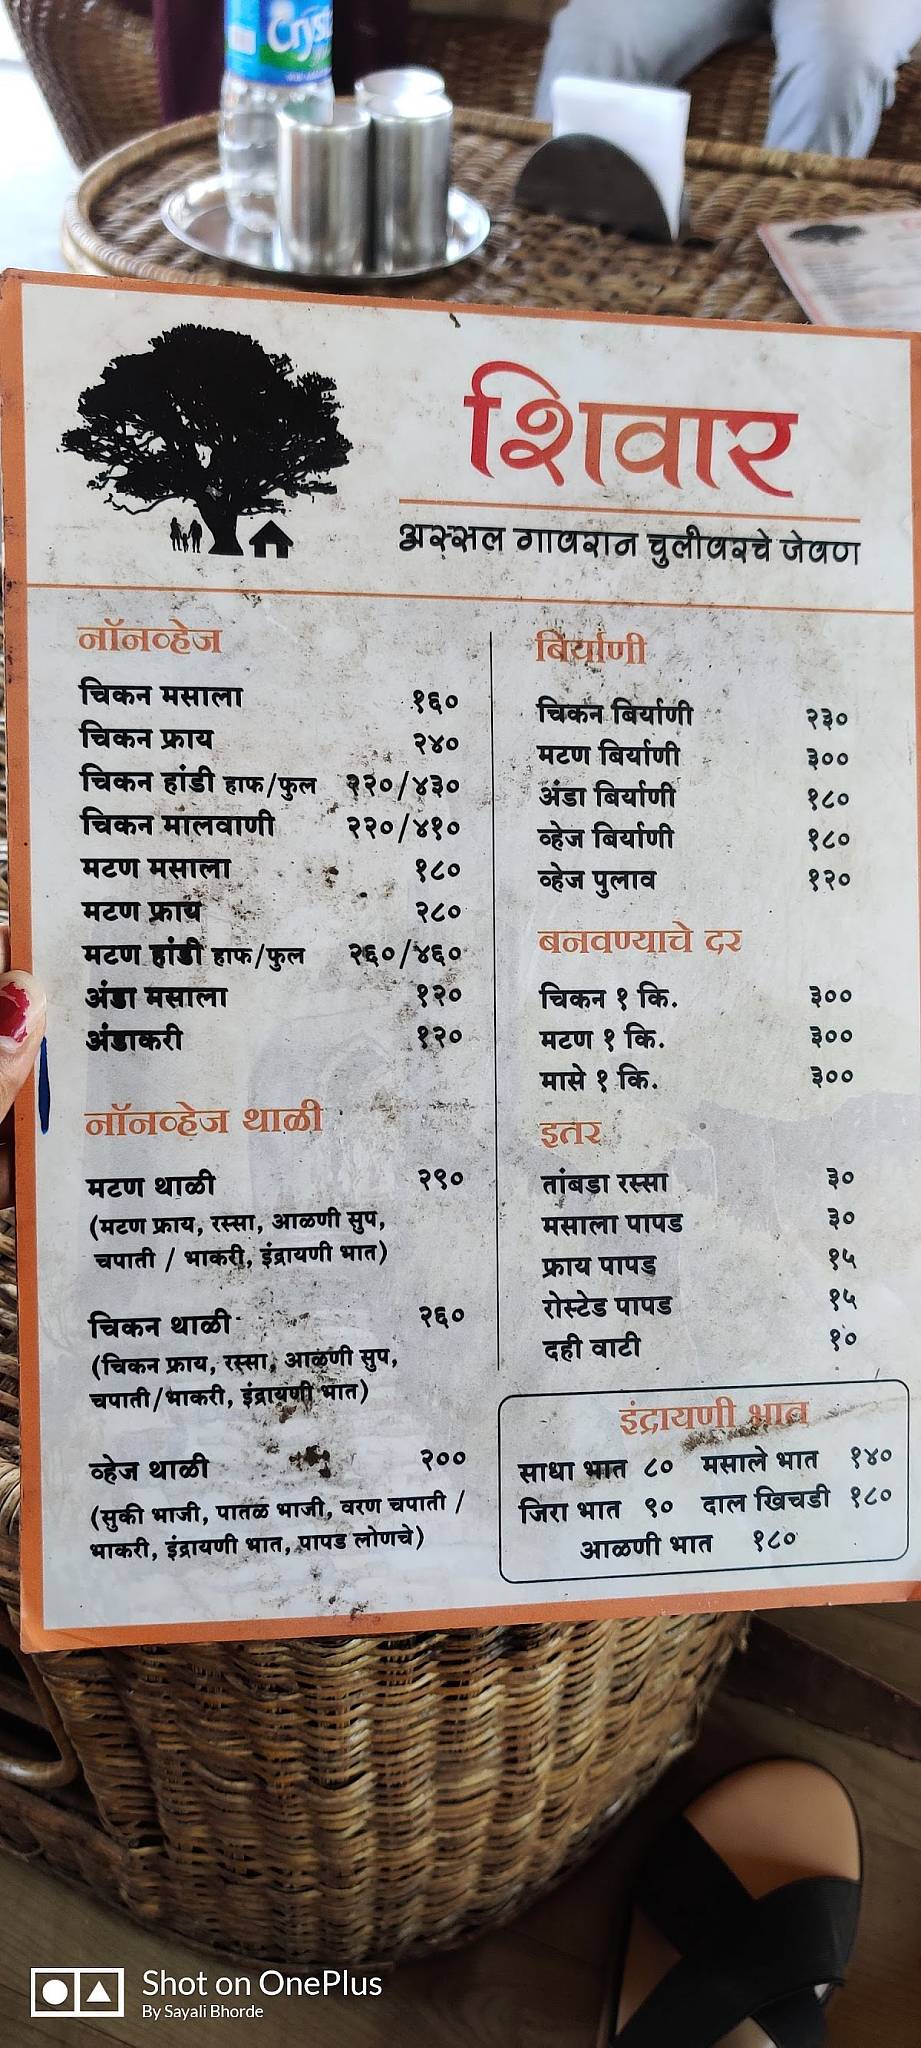 Crys
शिवार
अस्सल गावरान चुलीवरचे जेवण
नॉनव्हेज
चिकन मसाला १६०
चिकन फ्राय २४०
चिकन हांडी हाफ/फुल २२०/४३०
चिकन मालवाणी २२०/४१०
मटण मसाला १८०
मटण फ्राय २८०
मटण हांडी हाफ/फुल २६०/४६०
अंडा मसाला १२०
अंडाकरी १२०
नॉनव्हेज थाळी
मटण थाळी २९०
(मटण फ्राय, रस्सा, आळणी सुप,
चपाती / भाकरी, इंद्रायणी भात)
चिकन थाळी २६०
(चिकन फ्राय, रस्सा, आळणी सुप,
चपाती/भाकरी, इंद्रायणी भात)
व्हेज थाळी २००
(सुकी भाजी, पातळ भाजी, वरण चपाती /
भाकरी, इंद्रायणी भात, पापड लोणचे)
बिर्याणी
चिकन बिर्याणी २३०
मटण बिर्याणी ३००
अंडा बिर्याणी १८०
व्हेज बिर्याणी १८०
व्हेज पुलाव १२०
बनवण्याचे दर
चिकन १ कि. ३००
मटण १ कि. ३००
मासे १ कि. ३००
इतर
तांबडा रस्सा ३०
मसाला पापड ३०
फ्राय पापड १५
रोस्टेड पापड १५
दही वाटी १०
इंद्रायणी भात
साधा भात ८० मसाले भात १४०
जिरा भात ९० दाल खिचडी १८०
आळणी भात १८०
Shot on OnePlus
By Sayali Bhorde